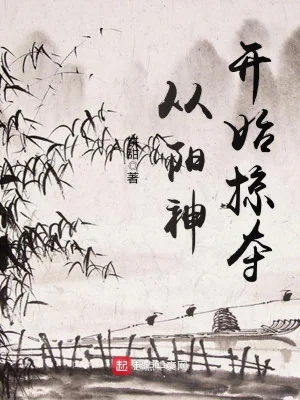 从阳神
开始掠夺
◎著
起点中文网